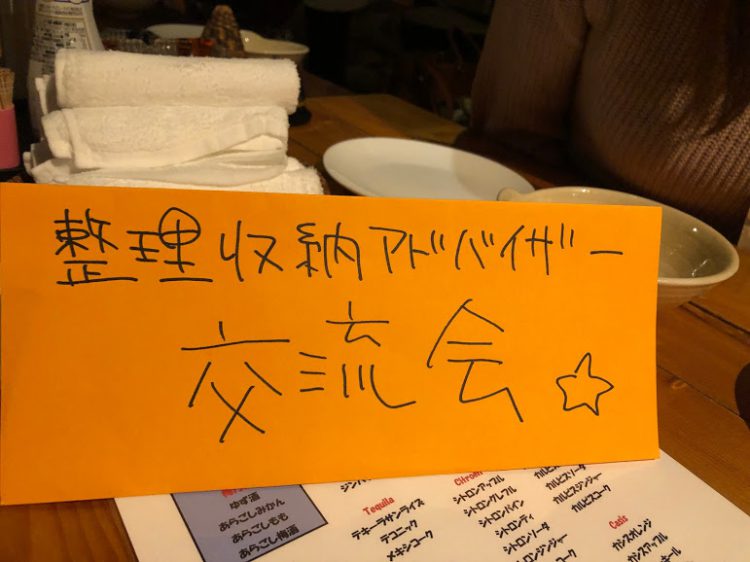 整理収納アドバイザー
交流会☆
ゆず酒
あらごしみかん
あらごしもも
あらごし梅酒
Tequila
テキーラサンライズ
テコニック
メキシコーク
シトロンアップル
シトロングレフル
シトロンパイン
シトロンティ
シトロンソーダ
シトロンジンジャー
カルピスソーダ
カルピスジンジャー
カルピスコーク
Casis
カシスオレンジ
カシスアップル